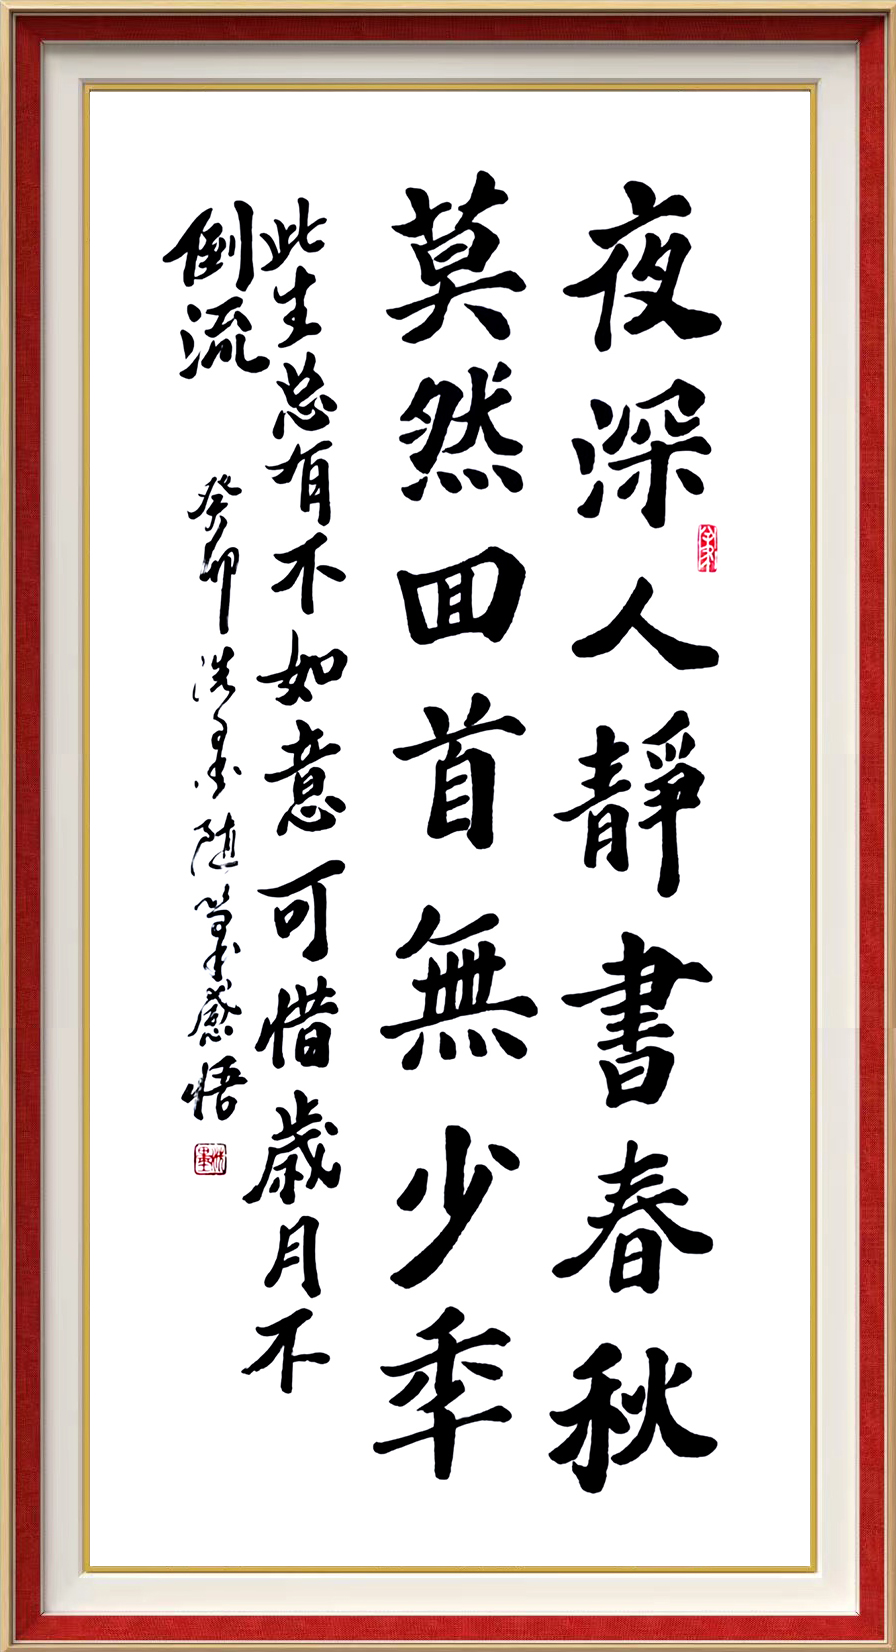 夜深人靜書春秋
莫然囬首無少秊
此生总有不如意可惜歲月不
倒流
癸卯 随筆感悟